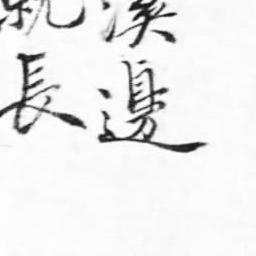 溪邊
就長